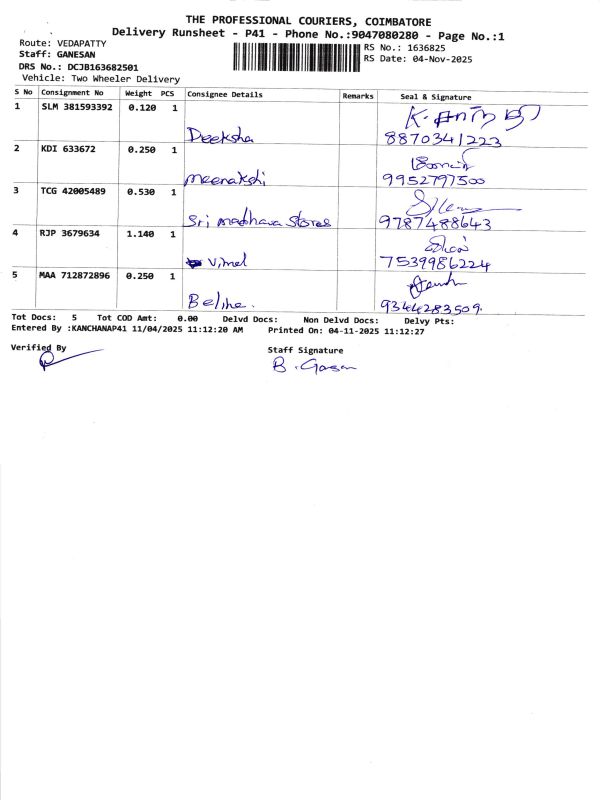 THE PROFESSIONAL COURIERS, COIMBATORE
Delivery Runsheet - P41 - Phone No.:9047080280 - Page No.:1
Route: VEDAPATTY
RS No.: 1636825
Staff: GANESAN
RS Date: 04-Nov-2025
DRS No.: DCJB163682501
Vehicle: Two Wheeler Delivery
S No Consignment No Weight PCS Consignee Details Remarks Seal & Signature
1 SLM 381593392 0.120 1
Deeksha 8870341223
2 KDI 633672 0.250 1
Meenakshi 9952797500
3 TCG 42005489 0.530 1
Sri Madhava Stores 9787488643
4 RJP 3679634 1.140 1
Vimal 7539986224
5 MAA 712872896 0.250 1
9344283509.
Tot Docs: 5 Tot COD Amt: 0.00 Delvd Docs: Non Delvd Docs: Delvy Pts:
Entered By :KANCHANAP41 11/04/2025 11:12:20 AM Printed On: 04-11-2025 11:12:27
Verified By Staff Signature